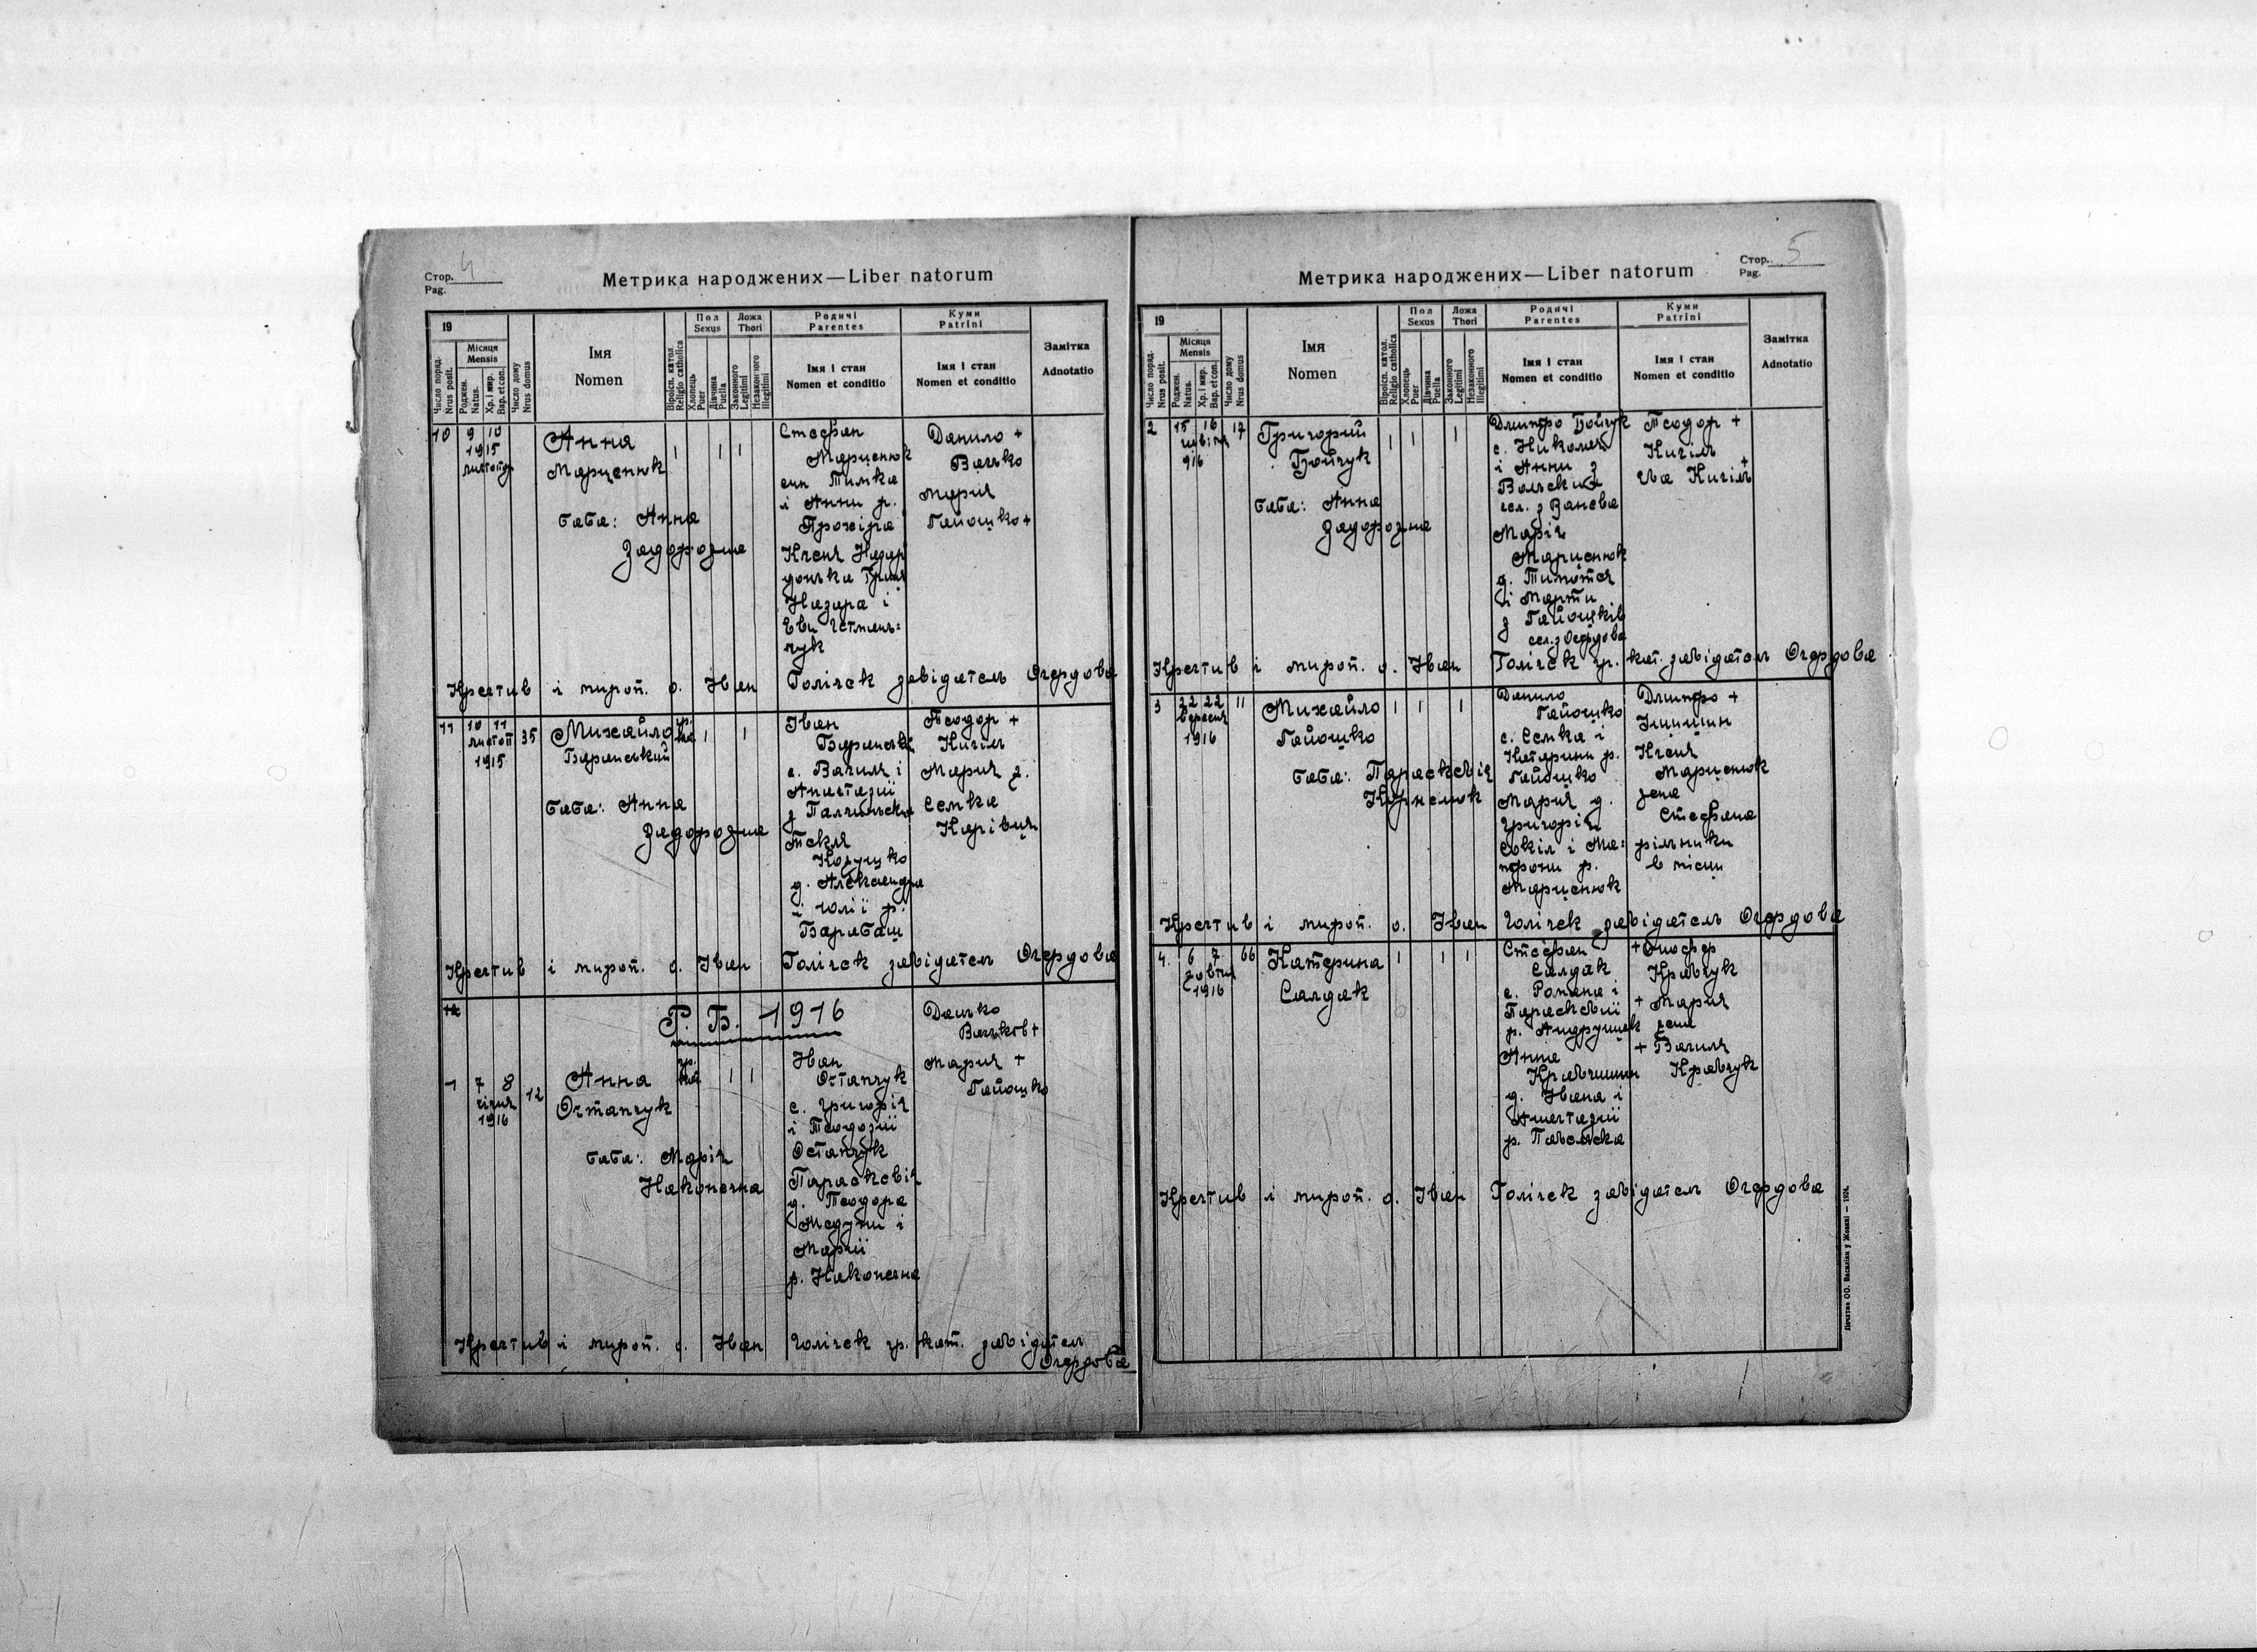 Стор. 4
Pag.
Метрика народжених — Liber natorum
19
Число поряд. Nrus posit.
Місяця Mensis
Роджен. Natus.
Хр. і мир. Bap. et con.
Число дому Nrus domus
Імя
Nomen
Віроісп. катол. Religio catholica
Пол
Sexus
Хлопець Puer
Дівчина Puella
Ложа
Thori
Законного Legitimi
Незаконного Illegitimi
Родичі
Parentes
Імя і стан
Nomen et conditio
Куми
Patrini
Імя і стан
Nomen et conditio
Замітка
Adnotatio
10 9 10
1915
листопад
Анна
Марценюк
баба: Анна
Задорозна
Стефан
Марценюк
син Тимка
і Анни р.
Прокіра
Ксеня Назар
донька Гриня
Назара і
Еви Гетмань=
чук
Данило +
Васько
Марія
Гайошко +
Крестив і мироп. о. Іван Голісек завідатель Осердова
11 10 11 35
листоп
1915
Михайло
Баранський
гр. кат
баба: Анна
Задорозна
Іван
Баранські
с. Василя і
Анастазії
з Палчинська
Текля
Коцушко
д. Александра
і Юлії р.
Барабаш
Теодор +
Кисіль
Марія з.
Семка
Карівця
Крестив і мироп. о. Іван Голісек завідатель Осердова
Р. Б. 1916
1 7 8 12
січня
1916
Анна
Остапчук
гр. кат
баба: Марія
Наконечна
Іван
Остапчук
с. Григорія
і Теодозії
Остапчук
Параскевія
д. Теодора
Медуни і
Марії
р. Наконечна
Данько
Васьків +
Марія +
Гайошко
Крестив і мироп. о. Іван Голісек гр. кат. завідатель
Осердова
Стор. 5
Pag.
Метрика народжених — Liber natorum
19
Число поряд. Nrus posit.
Місяця Mensis
Роджен. Natus.
Хр. і мир. Bap. et con.
Число дому Nrus domus
Імя
Nomen
Віроісп. катол. Religio catholica
Пол
Sexus
Хлопець Puer
Дівчина Puella
Ложа
Thori
Законного Legitimi
Незаконного Illegitimi
Родичі
Parentes
Імя і стан
Nomen et conditio
Куми
Patrini
Імя і стан
Nomen et conditio
Замітка
Adnotatio
2 15 16 17
цвітн
916
Григорий
Бойчук
баба: Анна
Задорозна
Дмитро Бойчук
с. Николая
і Анни з
Вольских
сел. з Ванева
Марія
Марценюк
д. Тимотея
і Марти
з Гайошків
сел. з Осердова
Теодор +
Кисіль
Єва Кисіль +
Крестив і мироп. о. Іван Голісек гр. кат. завідатель Осердова
3 22 22 11
вересня
1916
Михайло
Гайошко
баба: Параскевія
Корнелюк
Данило
Гайошко
с. Семка і
Катарини р.
Гайошко
Марія д.
Григорія
Сокіл і Ма=
трони р.
Марценюк
Дмитро +
Іщишин
Ксеня
Марценюк
зена
Стефана
рільники
в місци
Крестив і мироп. о. Іван Голісек завідатель Осердова
4. 6 7 66
Жовтня
1916
Катерина
Салдак
Стефан
Салдак
с. Романа і
Параскевії
р. Андрущак
Анна
Кравчишин
д. Івана і
Анастазії
р. Павельска
+ Онофер
Кравчук
+ Марія
зена
+ Василя
Кравчук
Крестив і мироп. о. Іван Голісек завідатель Осердова
Печатня ОО. Василіян у Жовкві — 1924.